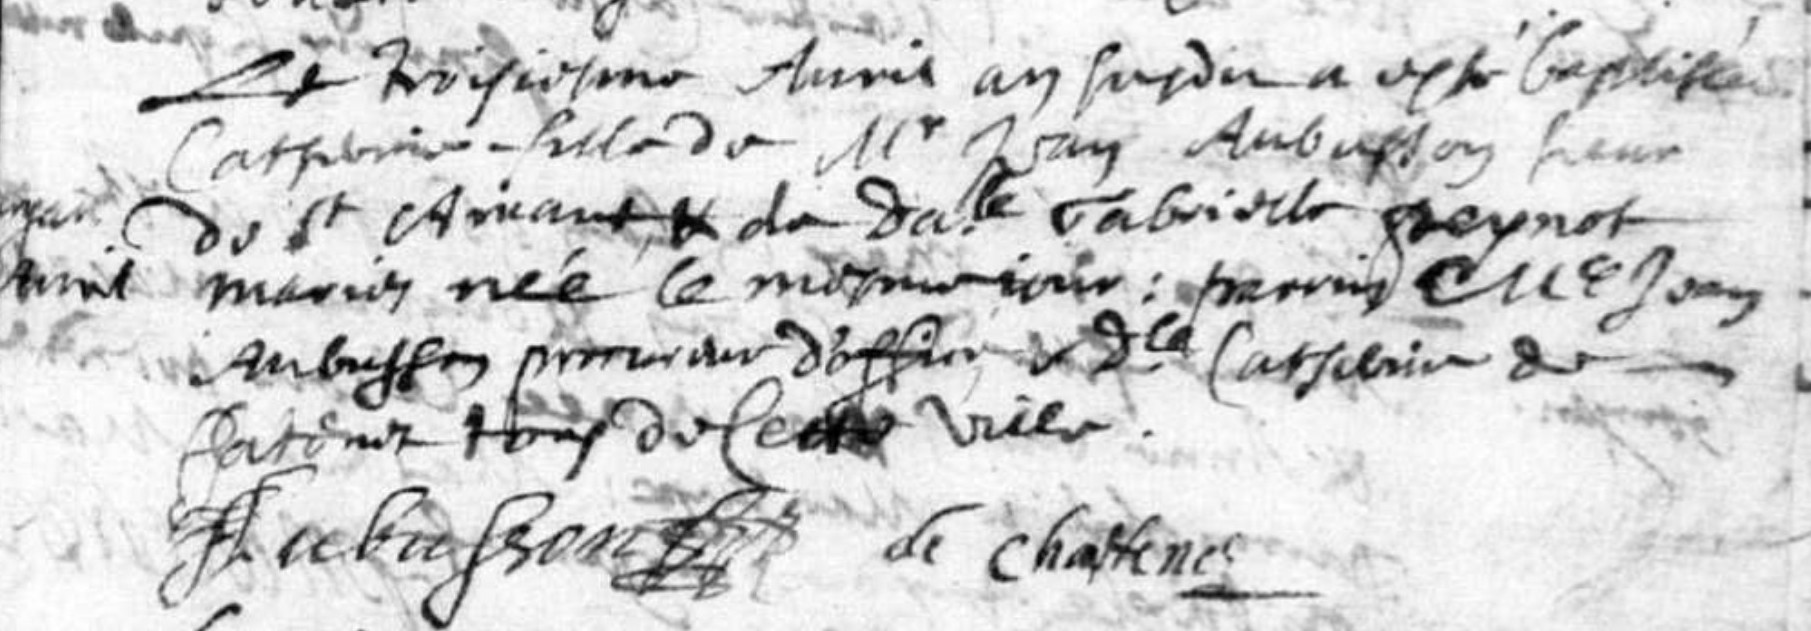 Le troisiesme Auril an susdit a esté baptisée
Catherine fille de Mr Jean Aubusson sieur
de St Amant & de dalle Gabrielle Greynot
mariés née le mesme iour : parrin Me Jean
Auril
Aubusson procureur d'office & dlle Catherine de
tous de Cette ville .
Aubusson de Chastenet